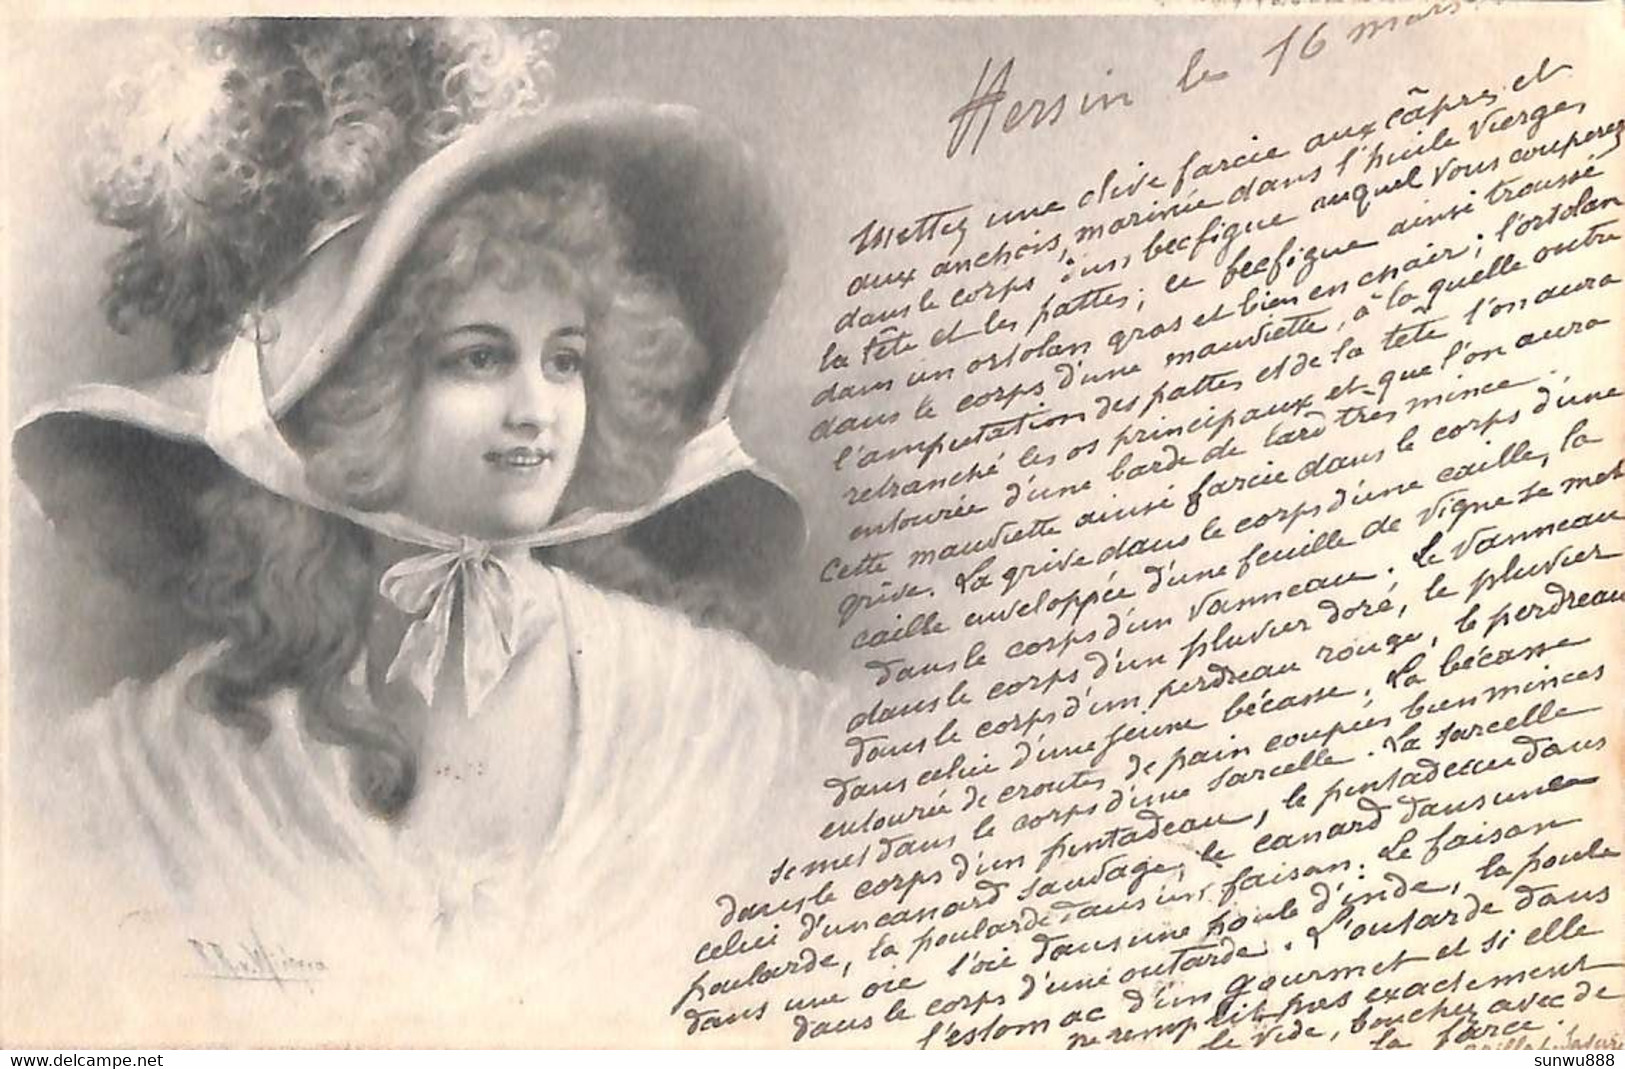 Hersin le 16 mars
Mettez une olive farcie aux câpres et
aux anchois, marinée dans l'huile vierge,
dans le corps d'un becfigue auquel vous couperez
la tête et les pattes; ce becfigue ainsi troussé
dans un ortolan gras et bien en chair; l'ortolan
dans le corps d'une mauviette, à laquelle outre
l'amputation des pattes et de la tête l'on aura
retranché les os principaux et que l'on aura
entourée d'une barde de lard très mince.
Cette mauviette ainsi farcie dans le corps d'une
grive. La grive dans le corps d'une caille, la
caille enveloppée d'une feuille de vigne se met
dans le corps d'un vanneau. Le vanneau
dans le corps d'un pluvier doré, le pluvier
dans le corps d'un perdreau rouge, le perdreau
dans celui d'une jeune bécasse, la bécasse
entourée de croutes de pain coupées bien minces
se met dans le corps d'une sarcelle. La sarcelle
dans le corps d'un pintadeau, le pintadeau dans
celui d'un canard sauvage, le canard dans une
poularde, la poularde dans un faisan. Le faisan
dans une oie l'oie dans une poule d'inde, la poule
dans le corps d'une outarde. L'outarde dans
l'estomac d'un gourmet et si elle
ne remplit pas exactement
le vide, bouchez avec de
la farce.
sunwu888